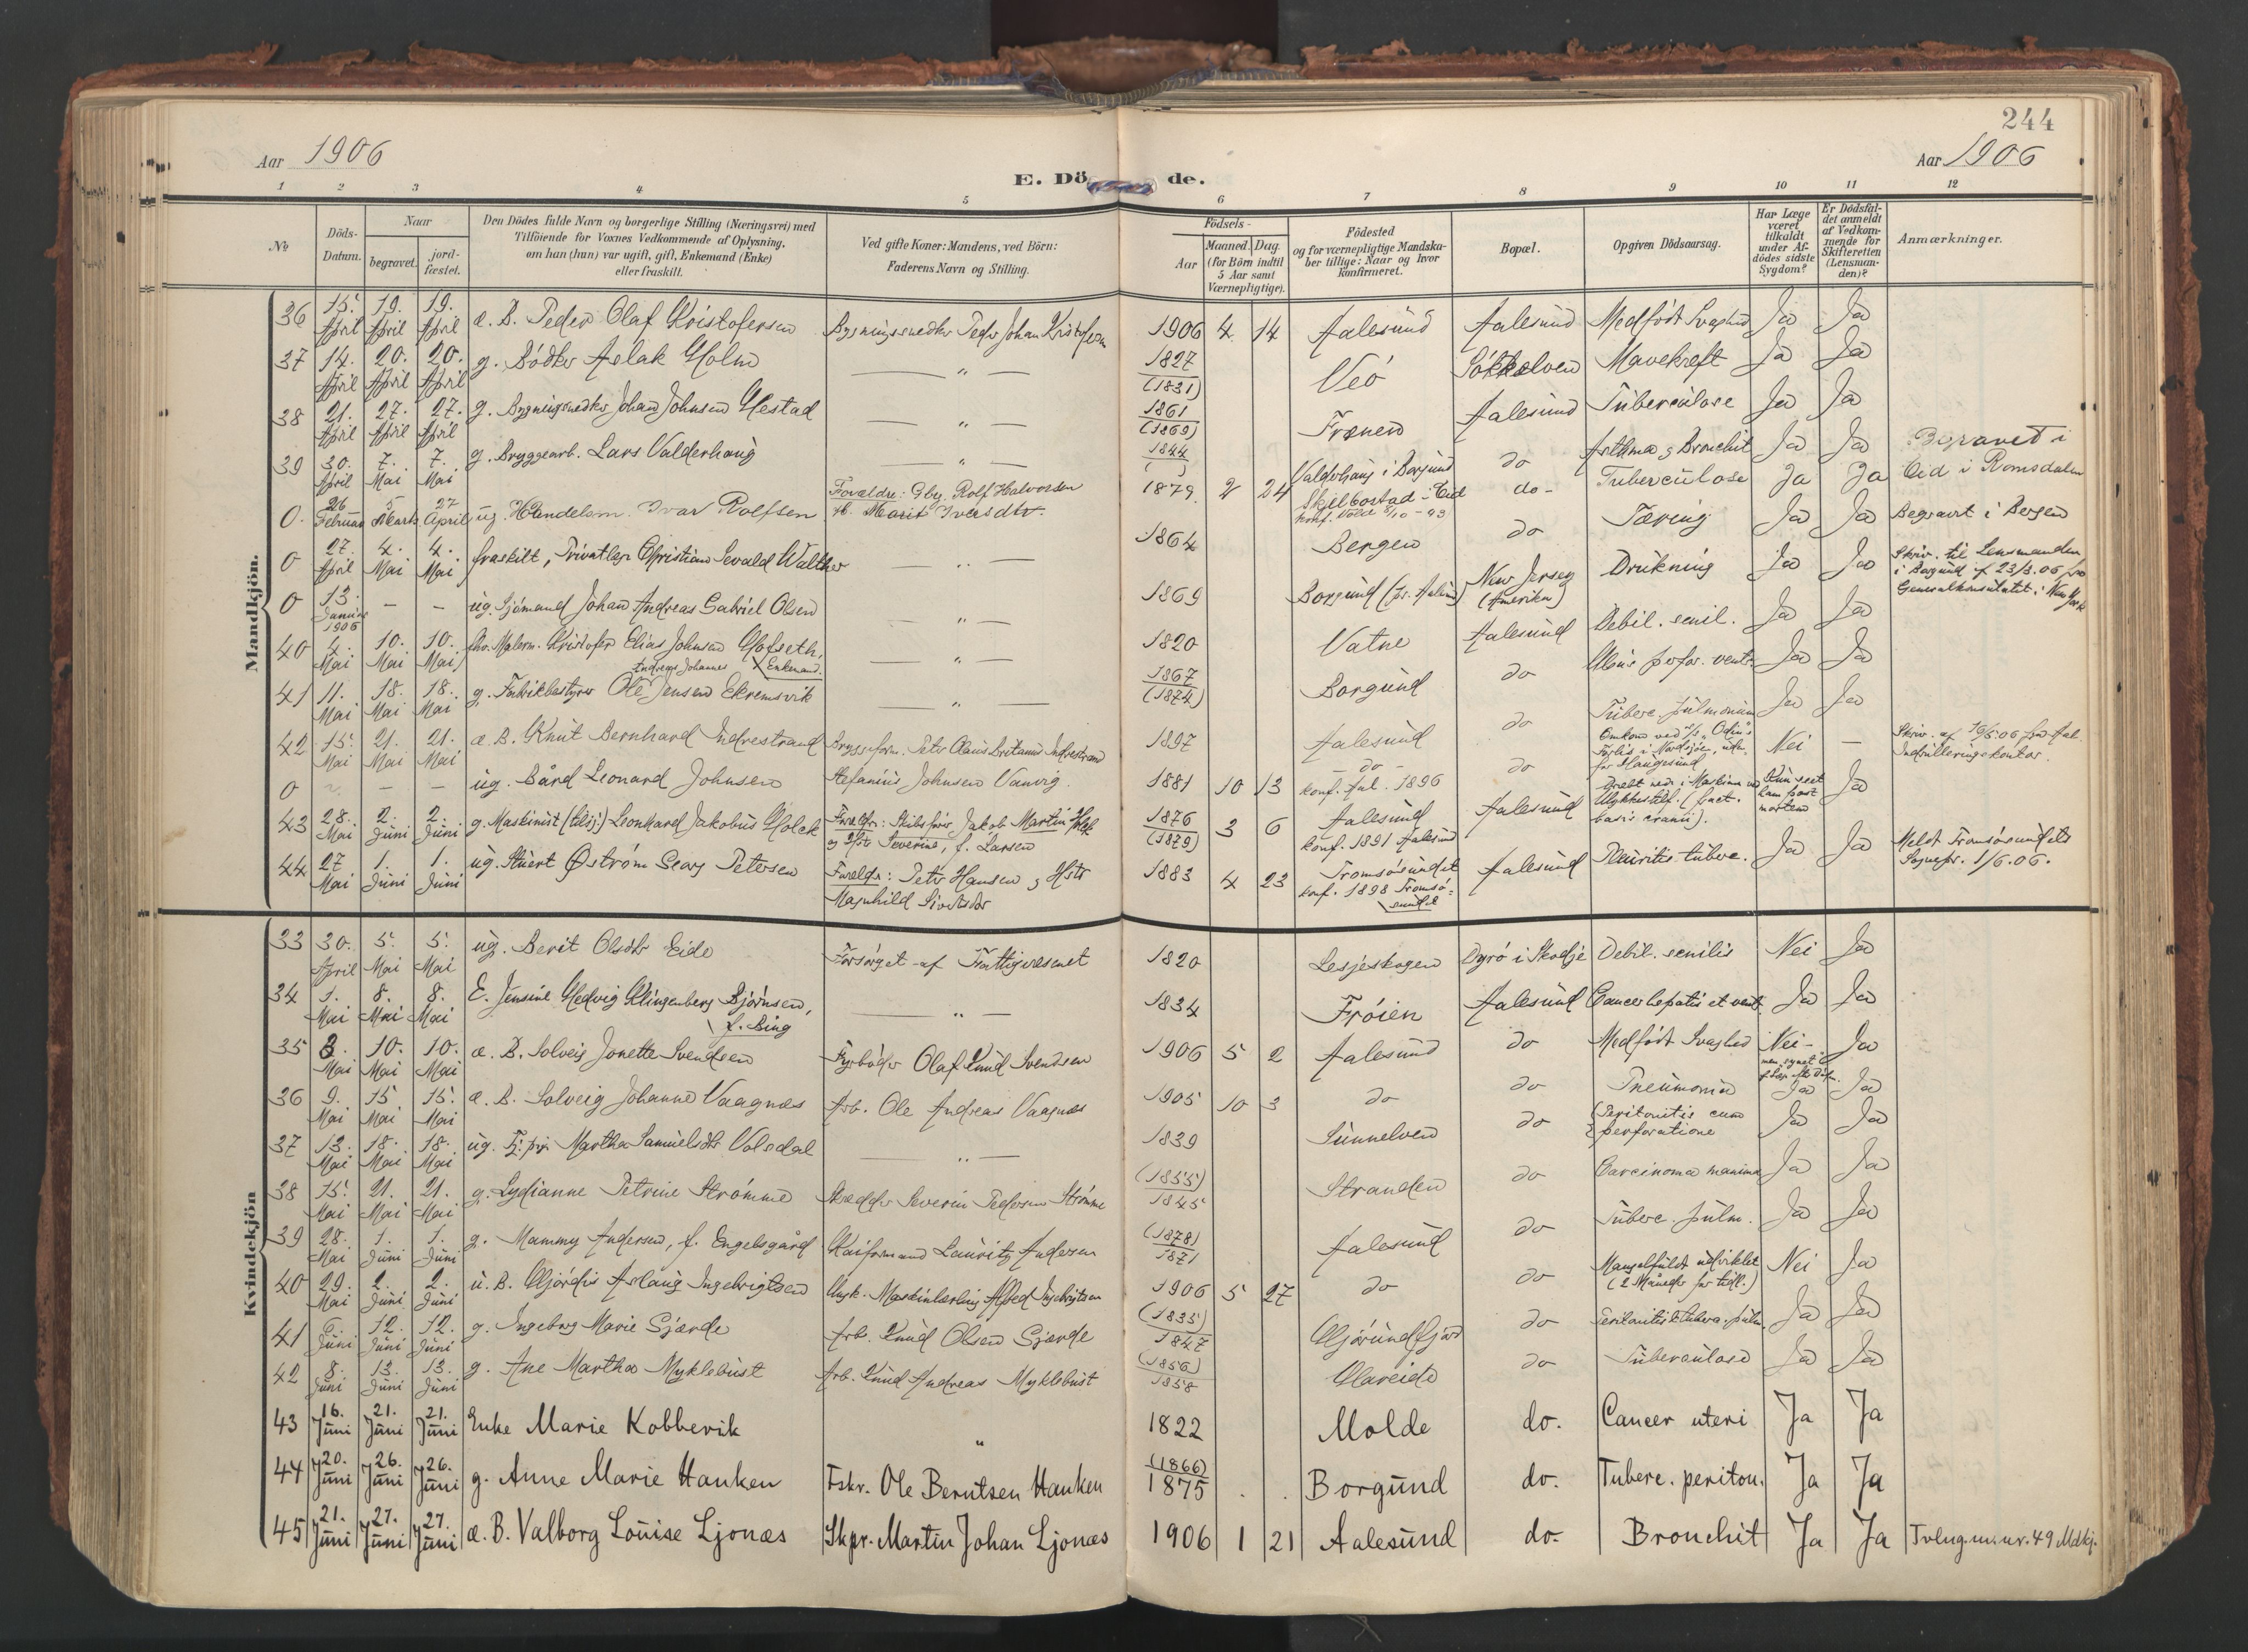 244
Aar 1906
Aar 1906
E. Döde.
1 2 3 4 5 6 7 8 9 10 11 12
№
Döds-
Datum.
Naar
begravet.
jord-
fæstet.
Den Dödes fulde Navn og borgerlige Stilling (Næringsvei) med
Tilföiende for Voxnes Vedkommende af Oplysning,
om han (hun) var ugift, gift, Enkemand (Enke)
eller fraskilt.
Ved gifte Koner: Mandens, ved Börn:
Faderens Navn og Stilling.
Födsels-
Aar
Maaned. Dag
(for Börn indtil
5 Aar samt
Værnepligtige).
Födested
og for værnepligtige Mandska-
ber tillige: Naar og hvor
konfirmeret.
Bopæl.
Opgiven Dödsaarsag.
Har Læge
været
tilkaldt
under Af-
dödes sidste
Sygdom?
Er Dödsfal-
det anmeldt
af Vedkom-
mende for
Skifteretten
(Lensman-
den)?
Anmærkninger.
Mandkjön.
36 15. April 19. April 19. April æ. B. Peder Olaf Kristofersen Bygningssnedker Peder Johan Kristofersen 1906 4 14 Aalesund Aalesund Medfödt Svaghed Ja Ja
37 14. April 20. April 20. April g. Bödker Aslak Holm — " — 1827 (1831) Veö Sökkelven Mavekreft Ja Ja
38 21. April 27. April 27. April g. Bygningssnedker Johan Johnsen Hestad — " — 1861 (1869) Frænen Aalesund Tuberculose Ja Ja
39 30. April 7. Mai 7. Mai g. Bryggearb. Lars Valderhaug — " — 1844 ( ) Valderhaug i Borgund do Asthma & Bronchit Ja Ja
0. 26 Februar 5 Marts 27 April ug. Handelsm. Ivar Rolfsen Forældre: Gbr. Rolf Halvorsen H. Marit Iversdtr. 1879 2 24 Skjelbostad i Eid konf. Volde 8/10 - 93 do - Tuberculose Ja Ja Begravet i Eid i Romsdalen
0 27. April 4. Mai 4. Mai fraskilt, Privatlær Christian Sevald Walther — " — 1864 Bergen do Tæring Ja Ja Begravet i Bergen
0 13. Januar 1906 — — ug. Sjömand Johan Andreas Gabriel Olsen — " — 1869 Borgund (pr. Aalesund) New Jersey (Amerika) Drukning Ja Ja Skriv. til Lensmanden i Borgund af 23/3.06 fra Generalkonsulatet i New York
40 4. Mai 10. Mai 10. Mai fhv. Malerm. Kristofer Elias Johnsen Hofseth, Enkemand. — " — 1820 Vatne Aalesund Debil. senil. Ja Ja
41 11. Mai 18. Mai 18. Mai g. Fabrikbestyrer Ole Andreas Johannes Jensen Ekremsvik — " — 1867 (1874) Borgund do Ulcus perfor. ventr. Ja Ja
42 15. Mai 21. Mai 21. Mai æ. B. Knut Bernhard Indrestrand Bryggeform. Peter Olaus Britanus Indrestrand 1897 Aalesund do Tuberc. pulmonum Ja Ja
0 — — ug. Bård Leonard Johnsen Stefanius Johnsen Vanvig. 1881 10 13 — do — konf. Aal. 1896 do Omkom ved s/s "Odin"s Forlis i Nordsjöen, udenfor Haugesund Nei — Skriv. af 19/5.06 fra Aal. Indrulleringskontor.
43 28. Mai 2. Juni 2. Juni g. Maskinist (tilsj.) Leonhard Jakobus Holck Forældr: Skibsförer Jakob Martin Holck og Hst Severine, f. Larsen 1876 (1879) 3 6 Aalesund konf. 1891 Aalesund Aalesund Dræbt ved Ulykkestilf. (fract. basis cranii). Kun seet ham post mortem Ja
44 27 Mai 1. Juni 1. Juni ug. Stuert Öström Georg Petersen Forældr: Peter Hansen & Hstr Magnhild Sivertsdtr 1883 4 23 Tromsösundet konf. 1898 Tromsösundet Aalesund Pleuritis tuberc. Ja Ja Meldt Tromsösundets Sognepr. 1/6.06.
Kvindekjön
33 30. April 5. Mai 5. Mai ug. Berit Olsdtr Eide Forsörget af Fattigvæsenet 1820 Lesjeskogen Dyrö i Skodje Debil. senilis Nei Ja
34 1. Mai 8. Mai 8. Mai E. Jensine Hedvig Klingenberg Björnsen, f. Bing — " — 1834 Fröien Aalesund Cancer hepatis et vent. Ja Ja
35 3. Mai 10. Mai 10. Mai æ. B. Solveig Jonette Svendsen Fyrböder Olaf Knud Svendsen 1906 5 2 Aalesund do Medfödt Svaghed Nei - men synet af Læge Ja
36 9. Mai 15 Mai 15. Mai æ. B. Solveig Johanne Vaagnæs Arb. Ole Andreas Vaagnæs 1905 10 3 do do Pneumonia Ja Ja
37 13. Mai 18. Mai 18. Mai ug. Martha Samuelsdtr Volsdal — " — 1839 Sunnelven do Peritonitis cum perforatione Ja Ja
38 15. Mai 21. Mai 21. Mai g. Lydianne Petrine Strömme Skrædder Severin Pedersen Strömme (1855) 1845 Stranden do Carcinoma mamma Ja Ja
39 28. Mai 1. Juni 1. Juni g. Mammy Andersen, f. Engelsgård Kaiformand Lauritz Andersen (1878) 1871 Aalesund do Tuberc. pulm. Ja Ja
40 29. Mai 2. Juni 2. Juni u. B. Hjördis Aslaug Ingebrigtsen Ungk. Maskinlærling Alfred Ingebrigtsen 1906 5 27 do do Mangelfuldt udviklet (2 Måneder for tidl.) Nei Ja
41 6. Juni 12. Juni 12. Juni g. Ingeborg Marie Gjærde Arb. Knud Olsen Gjærde (1835) 1847 Hjörundfjord do Peritonitis & tuberc. pulm. Ja Ja
42 8. Juni 13. Juni 13. Juni g. Ane Martha Myklebust Arb. Knud Andreas Myklebust (1856) 1858 Hareide do Tuberculose Ja Ja
43 16. Juni 21. Juni 21. Juni Enke Marie Kobbervik " 1822 Molde do. Cancer uteri Ja Ja
44 20. Juni 26. Juni 26. Juni g. Anne Marie Hanken Fskr. Ole Berntsen Hanken (1866) 1875 . . Borgund do. Tuberc. periton. Ja Ja
45 21. Juni 27. Juni 27. Juni æ. B. Valborg Louise Ljonæs Skpr. Martin Johan Ljonæs 1906 1 21 Aalesund do. Bronchit Ja Ja Tvlng. m. nr. 49 Mdkj.